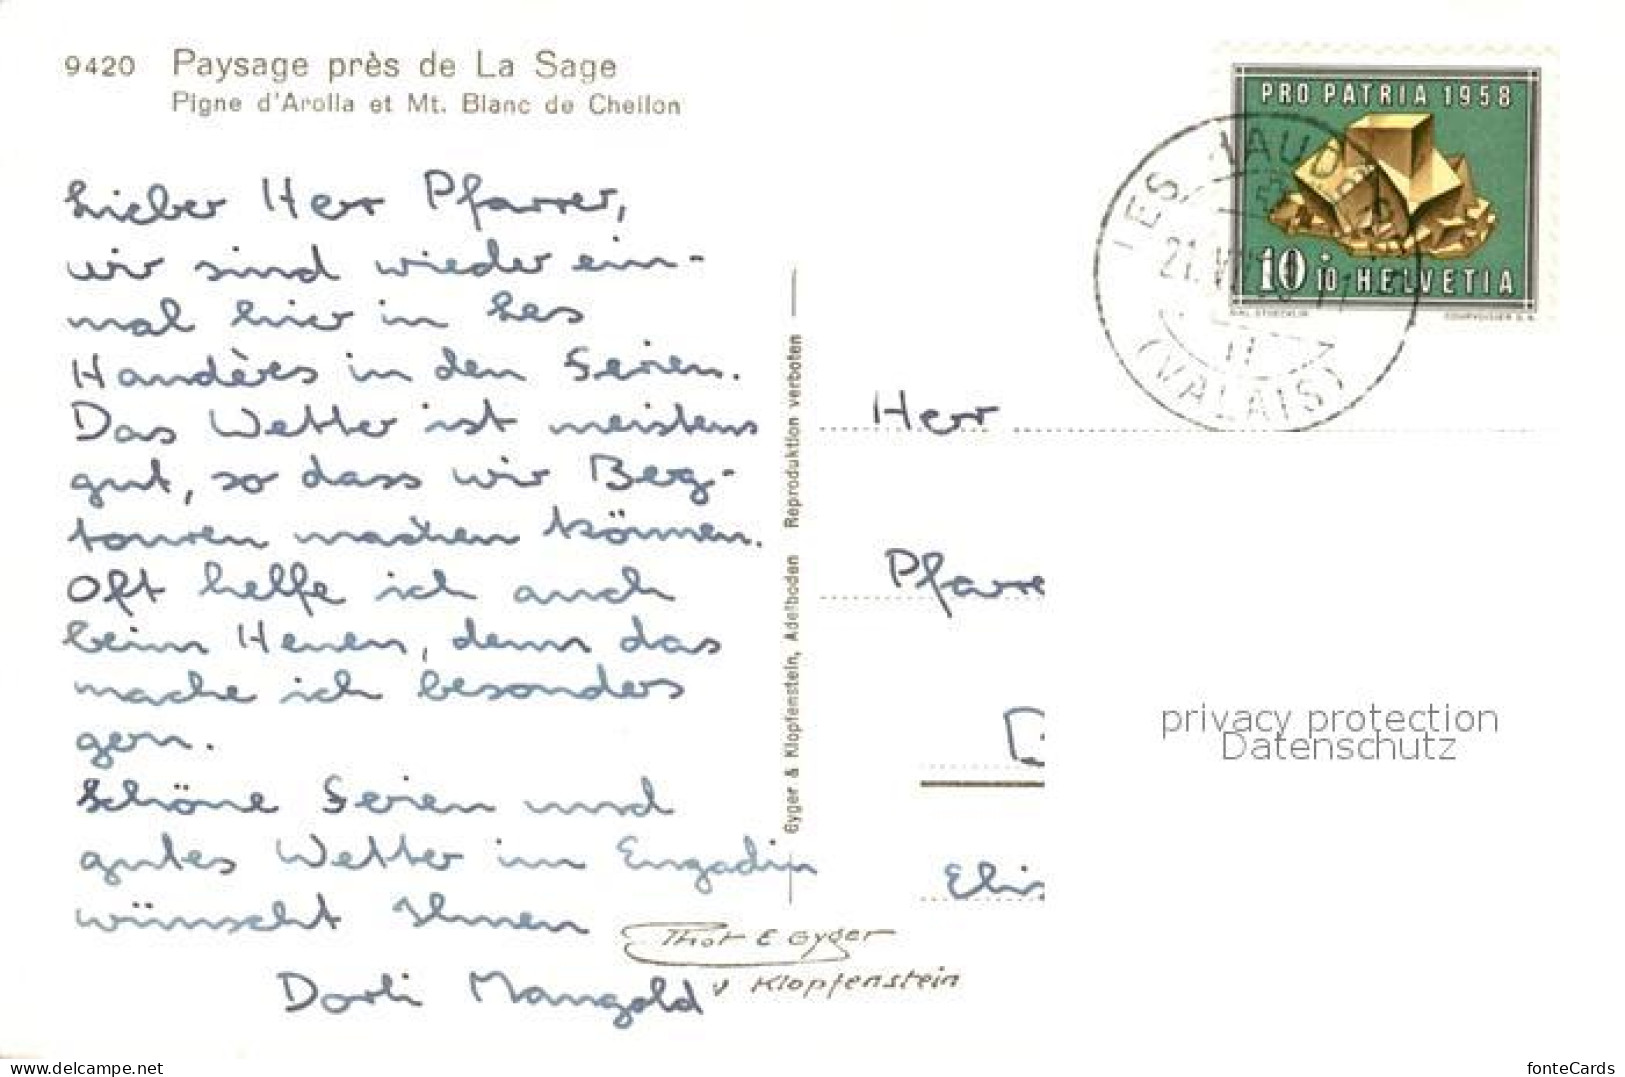 9420 Paysage près de La Sage
Pigne d'Arolla et Mt. Blanc de Cheilon
Lieber Herr Pfarrer,
wir sind wieder ein-
mal hier in Les
Haudères in den Ferien.
Das Wetter ist meistens
gut, so dass wir Berg-
touren machen können.
Oft helfe ich auch
beim Heuen, denn das
mache ich besonders
gern.
Schöne Ferien und
gutes Wetter im Engadin
wünscht Ihnen
Dorli Mangold
Gyger & Klopfenstein, Adelboden Reproduktion verboten
Phot E Gyger
v Klopfenstein
PRO PATRIA 1958
10 + 10 HELVETIA
COURVOISIER S.A.
LES HAUD
21.
(VALAIS)
Herr
Pfarre
Elis
privacy protection
Datenschutz
www.delcampe.net
fonteCards